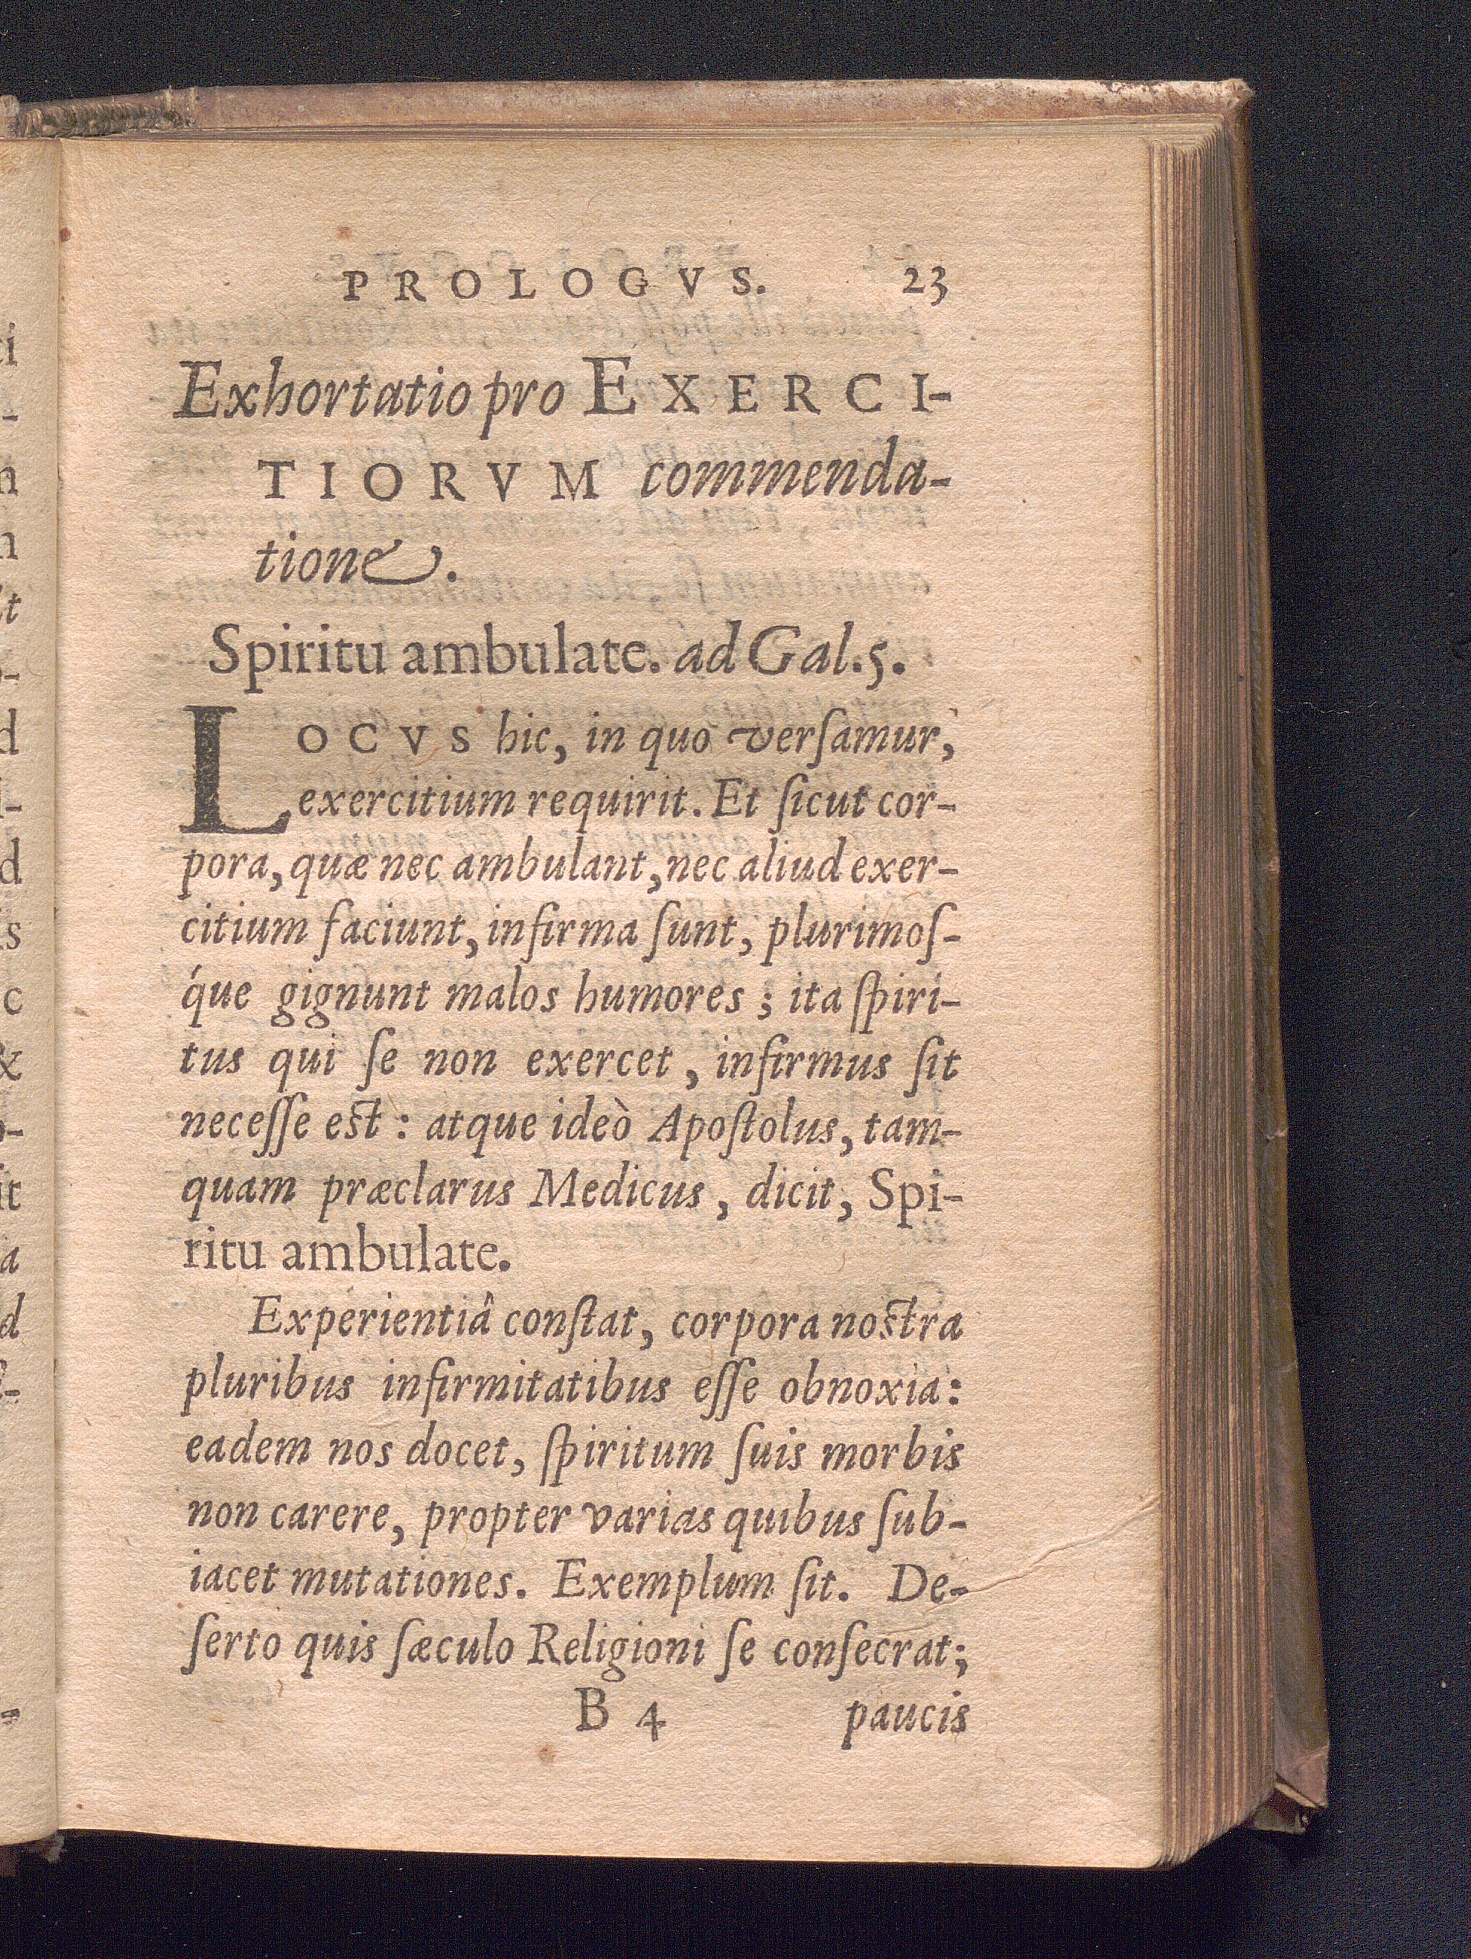 PROLOGVS. 23
Exhortatio pro EXERCI-
TIORVM commenda-
tione.
Spiritu ambulate. ad Gal. 5.
LOCVS hic, in quo verſamur,
exercitium requirit. Et ſicut cor-
pora, quæ nec ambulant, nec aliud exer-
citium faciunt, infirma ſunt, plurimoſ-
q́ue gignunt malos humores; ita ſpiri-
tus qui ſe non exercet, infirmus ſit
neceſſe est: atque ideò Apoſtolus, tam-
quam præclarus Medicus, dicit, Spi-
ritu ambulate.
Experientiâ conſtat, corpora nostra
pluribus infirmitatibus eſſe obnoxia:
eadem nos docet, ſpiritum ſuis morbis
non carere, propter varias quibus ſub-
iacet mutationes. Exemplum ſit. De-
ſerto quis ſæculo Religioni ſe conſecrat;
B 4 paucis